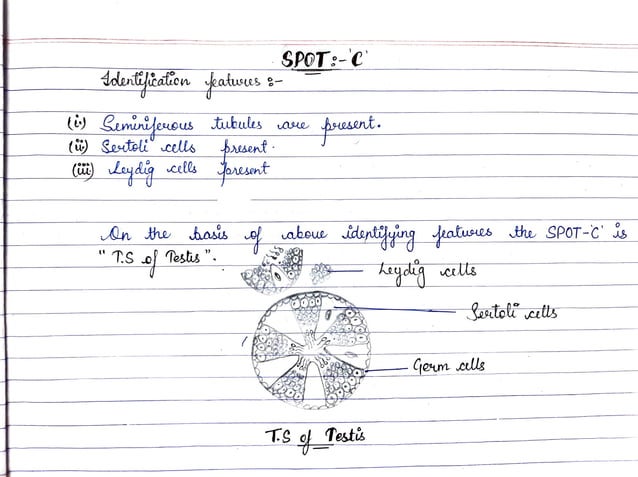 SPOT :- 'C'
Identification features :-
(i) Seminiferous tubules are present.
(ii) Sertoli cells present.
(iii) Leydig cells present
On the basis of above identifying features the SPOT-'C' is
"T.S of Testis".
Leydig cells
Sertoli cells
Germ cells
T.S of Testis